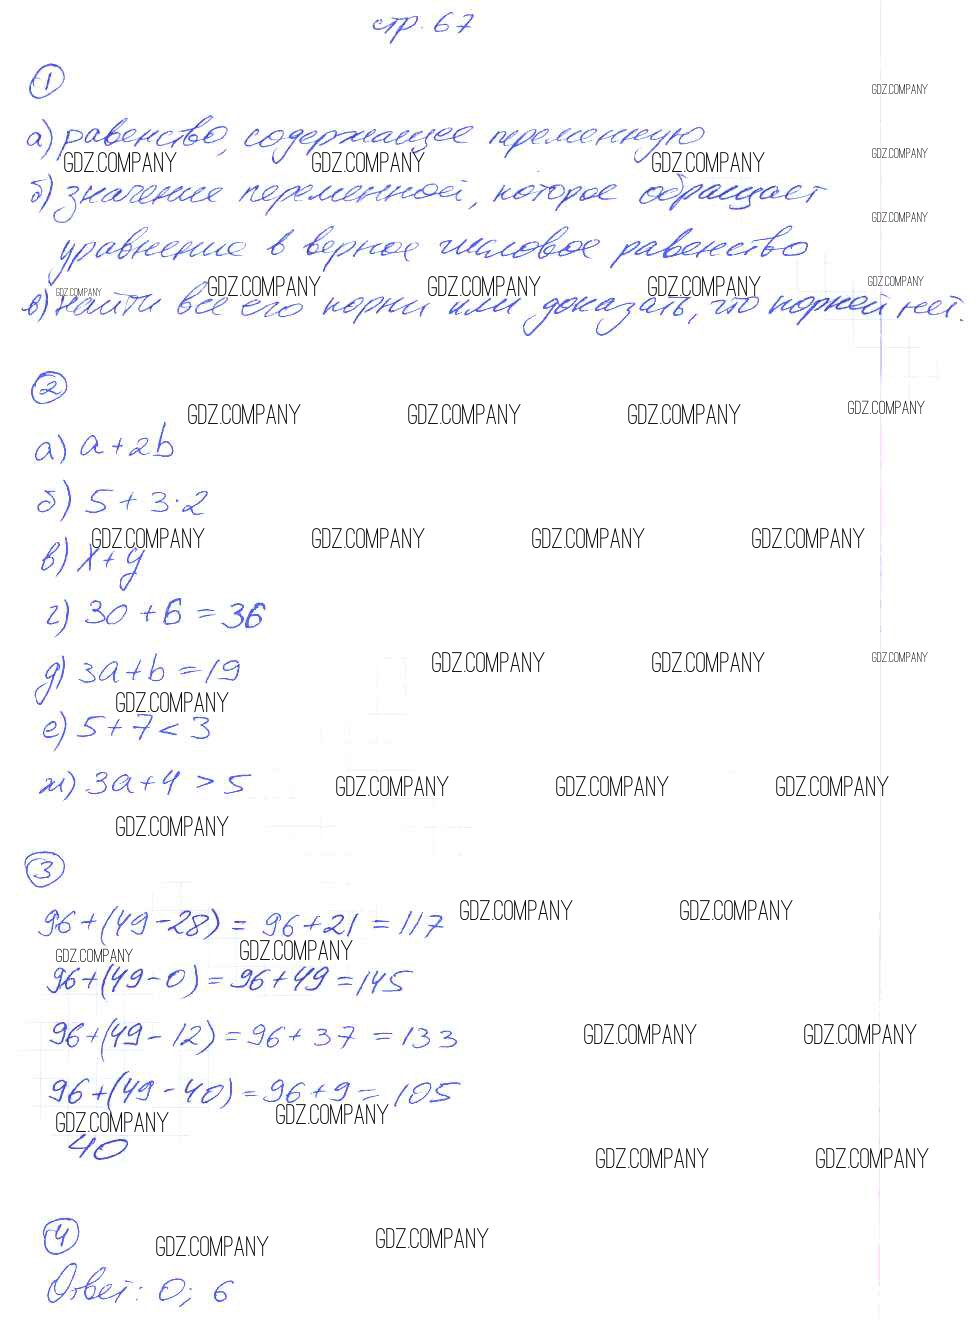 стр. 67
1
GDZ.COMPANY
а) равенство, содержащее переменную
GDZ.COMPANY GDZ.COMPANY GDZ.COMPANY GDZ.COMPANY
б) значение переменной, которое обращает
GDZ.COMPANY
уравнение в верное числовое равенство
GDZ.COMPANY GDZ.COMPANY GDZ.COMPANY GDZ.COMPANY GDZ.COMPANY
в) найти все его корни или доказать, что корней нет.
2
GDZ.COMPANY GDZ.COMPANY GDZ.COMPANY GDZ.COMPANY
а) a+2b
б) 5+3·2
GDZ.COMPANY GDZ.COMPANY GDZ.COMPANY GDZ.COMPANY
в) x+y
г) 30+6=36
д) 3a+b=19
GDZ.COMPANY GDZ.COMPANY GDZ.COMPANY
GDZ.COMPANY
е) 5+7<3
ж) 3a+4>5
GDZ.COMPANY GDZ.COMPANY GDZ.COMPANY
GDZ.COMPANY
3
96+(49-28)=96+21=117
GDZ.COMPANY GDZ.COMPANY
GDZ.COMPANY GDZ.COMPANY
96+(49-0)=96+49=145
96+(49-12)=96+37=133
GDZ.COMPANY GDZ.COMPANY
96+(49-40)=96+9=105
GDZ.COMPANY GDZ.COMPANY
40
GDZ.COMPANY GDZ.COMPANY
4
GDZ.COMPANY GDZ.COMPANY
Ответ: 0; 6